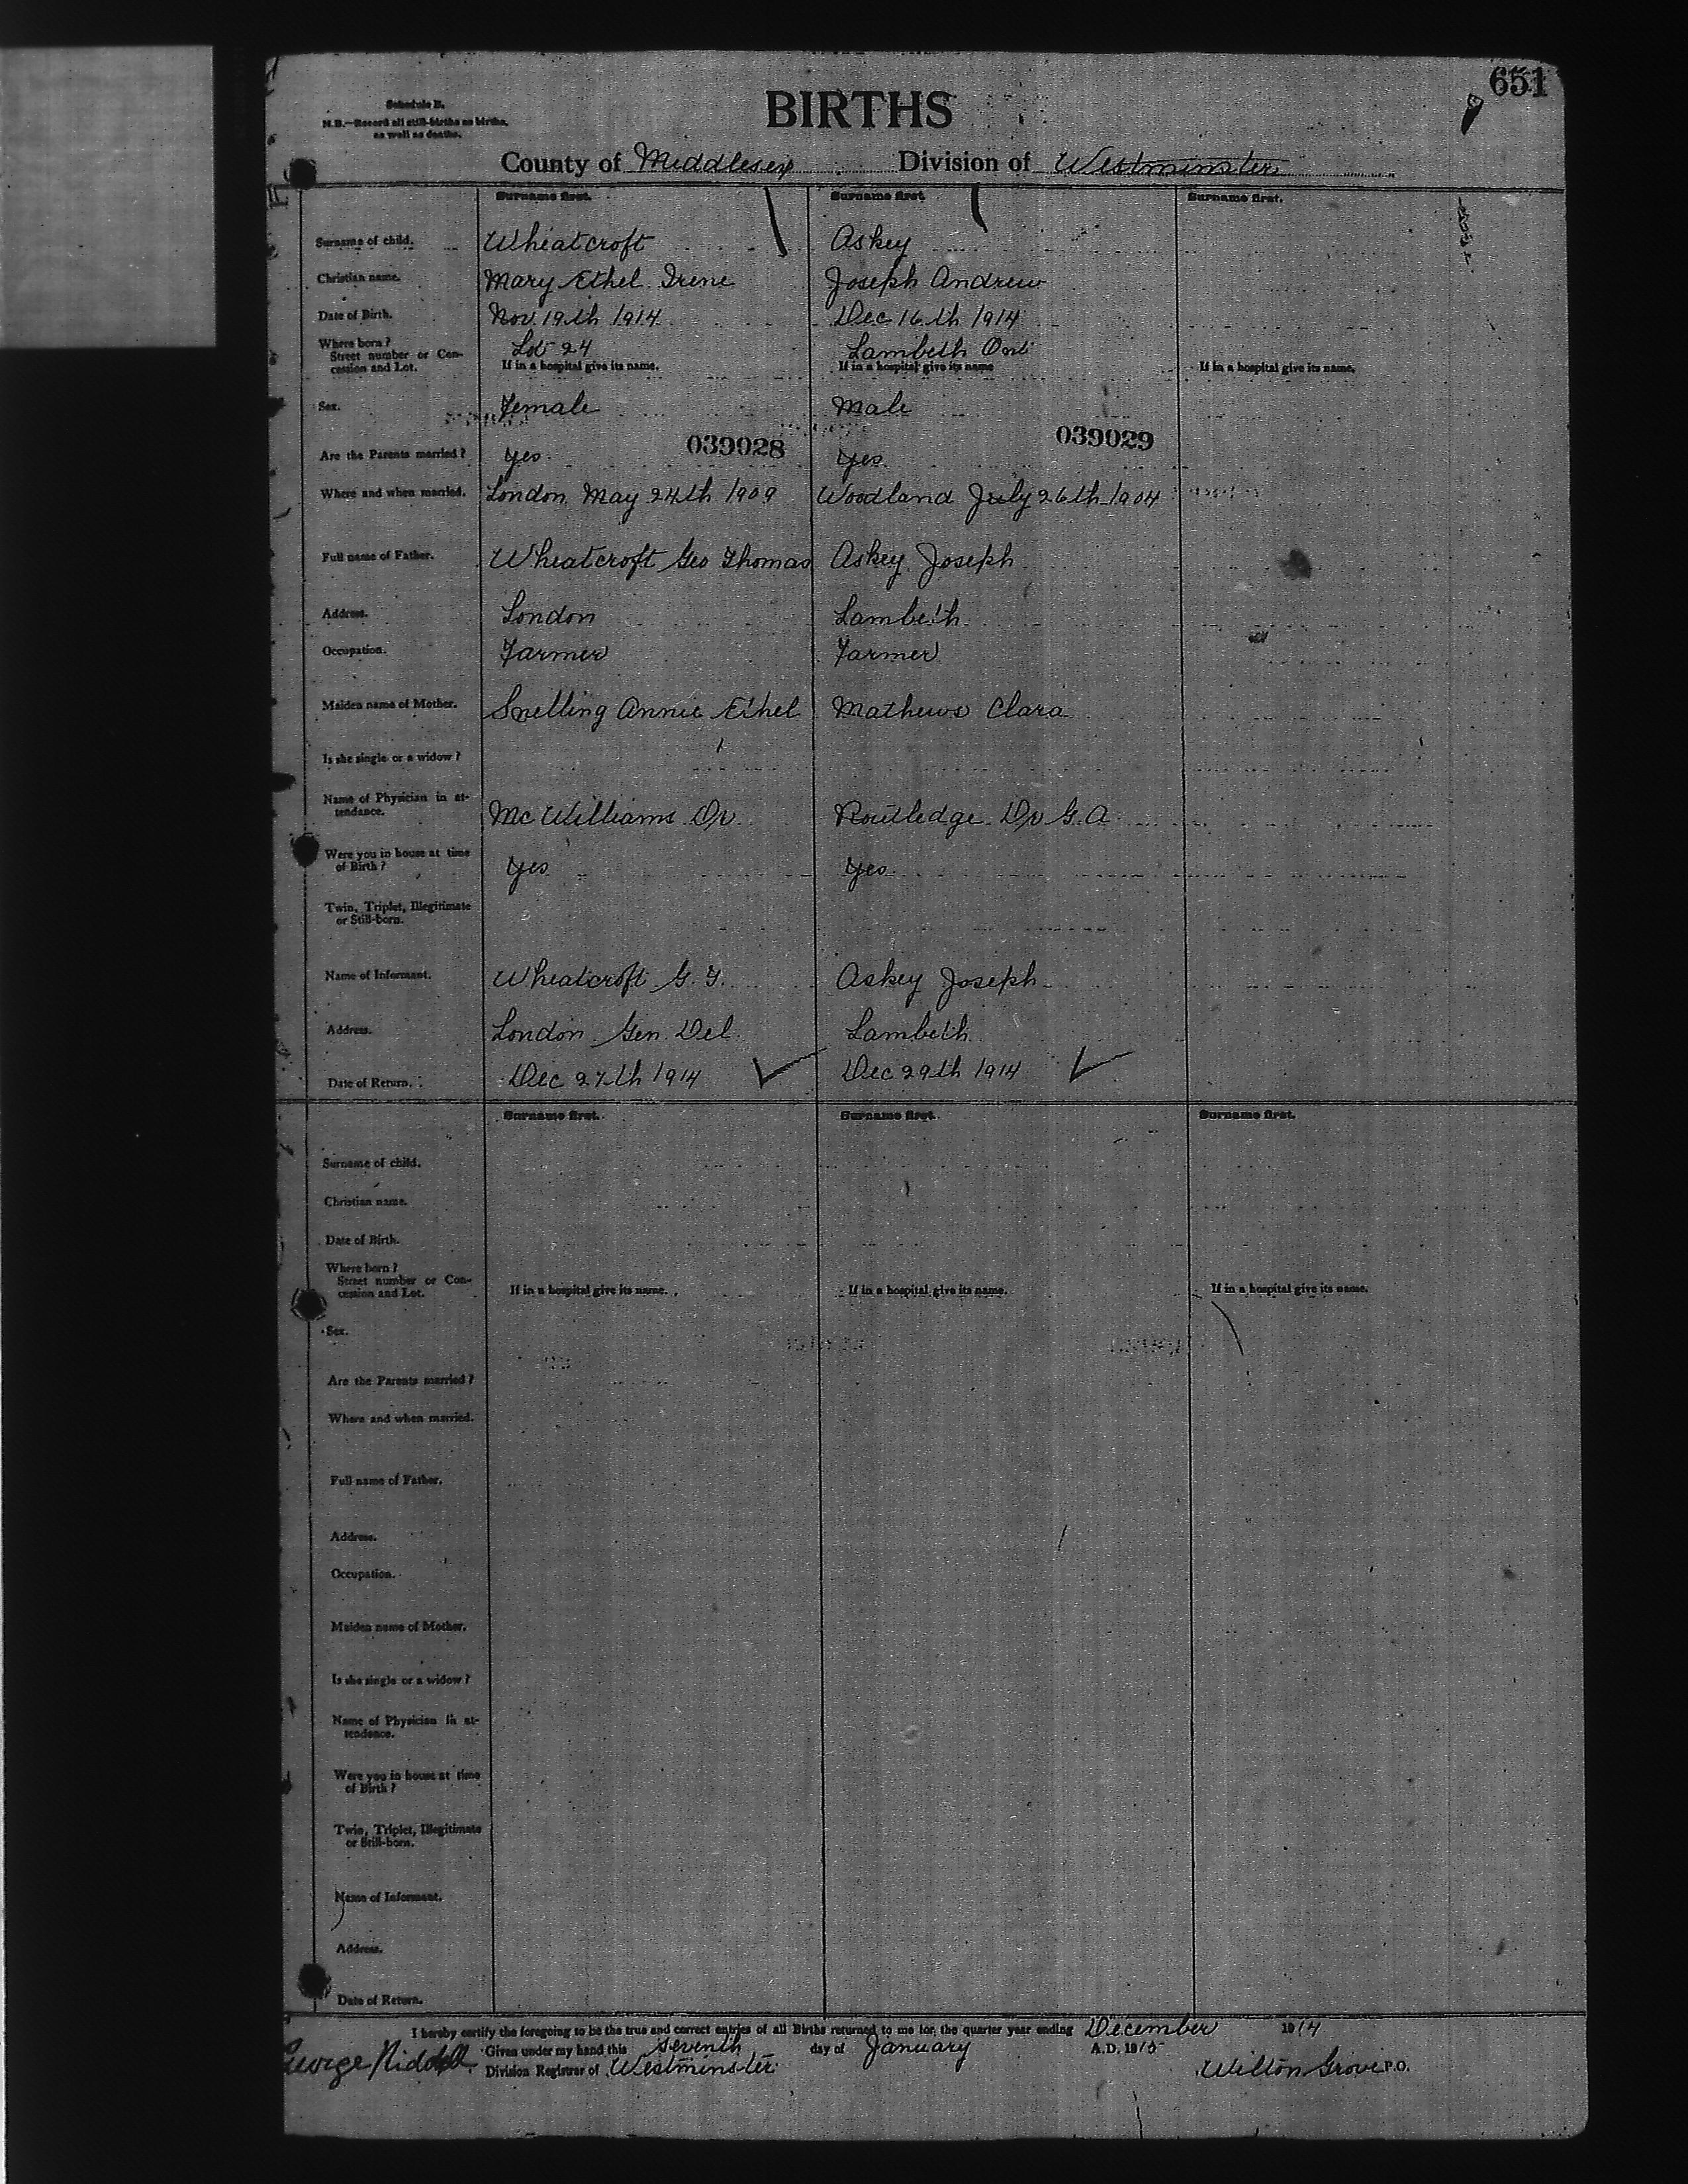 651
Schedule B.
N.B.—Record all still-births as births,
as well as deaths.
BIRTHS
County of Middlesex Division of Westminster
Surname first. Surname first. Surname first.
Surname of child. Wheatcroft Askey
Christian name. Mary Ethel Irene Joseph Andrew
Date of Birth. Nov 19th 1914 Dec 16th 1914
Where born? Lot 24 Lambeth Ont
Street number or Con-
cession and Lot. If in a hospital give its name. If in a hospital give its name If in a hospital give its name.
Sex. Female Male
039028 039029
Are the Parents married? Yes Yes
Where and when married. London May 24th 1909 Woodland July 26th 1904
Full name of Father. Wheatcroft Geo Thomas Askey Joseph
Address. London Lambeth
Occupation. Farmer Farmer
Maiden name of Mother. Snelling Annie Ethel Mathews Clara
Is she single or a widow?
Name of Physician in at-
tendance. McWilliams Dr Routledge Dr G.A
Were you in house at time
of Birth? Yes Yes
Twin, Triplet, Illegitimate
or Still-born.
Name of Informant. Wheatcroft G.T. Askey Joseph
Address. London Gen Del Lambeth
Date of Return. Dec 27th 1914 Dec 29th 1914
Surname first. Surname first. Surname first.
Surname of child.
Christian name.
Date of Birth.
Where born?
Street number or Con-
cession and Lot. If in a hospital give its name. If in a hospital give its name. If in a hospital give its name.
Sex.
Are the Parents married?
Where and when married.
Full name of Father.
Address.
Occupation.
Maiden name of Mother.
Is she single or a widow?
Name of Physician in at-
tendance.
Were you in house at time
of Birth?
Twin, Triplet, Illegitimate
or Still-born.
Name of Informant.
Address.
Date of Return.
I hereby certify the foregoing to be the true and correct entries of all Births returned to me for, the quarter year ending December 1914
Given under my hand this seventh day of January A.D. 1915
George Riddell Division Registrar of Westminster Wilton Grove P.O.